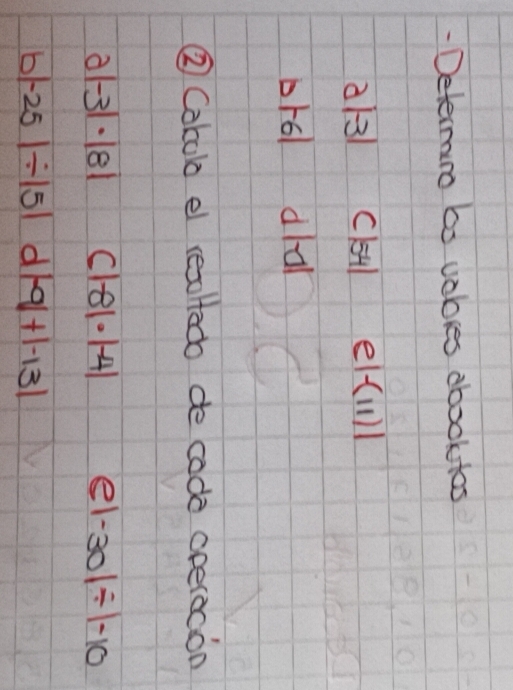 - Determina los valores absolutos
a|-3| c|54| e|-(11)|
b|-6| d|-a|
② Calcula el resultado de cada operación
a|-3|·|8| c|-8|·|-4| e|-30|÷|-10
b|-25|÷|5| d|-9|+|-13|